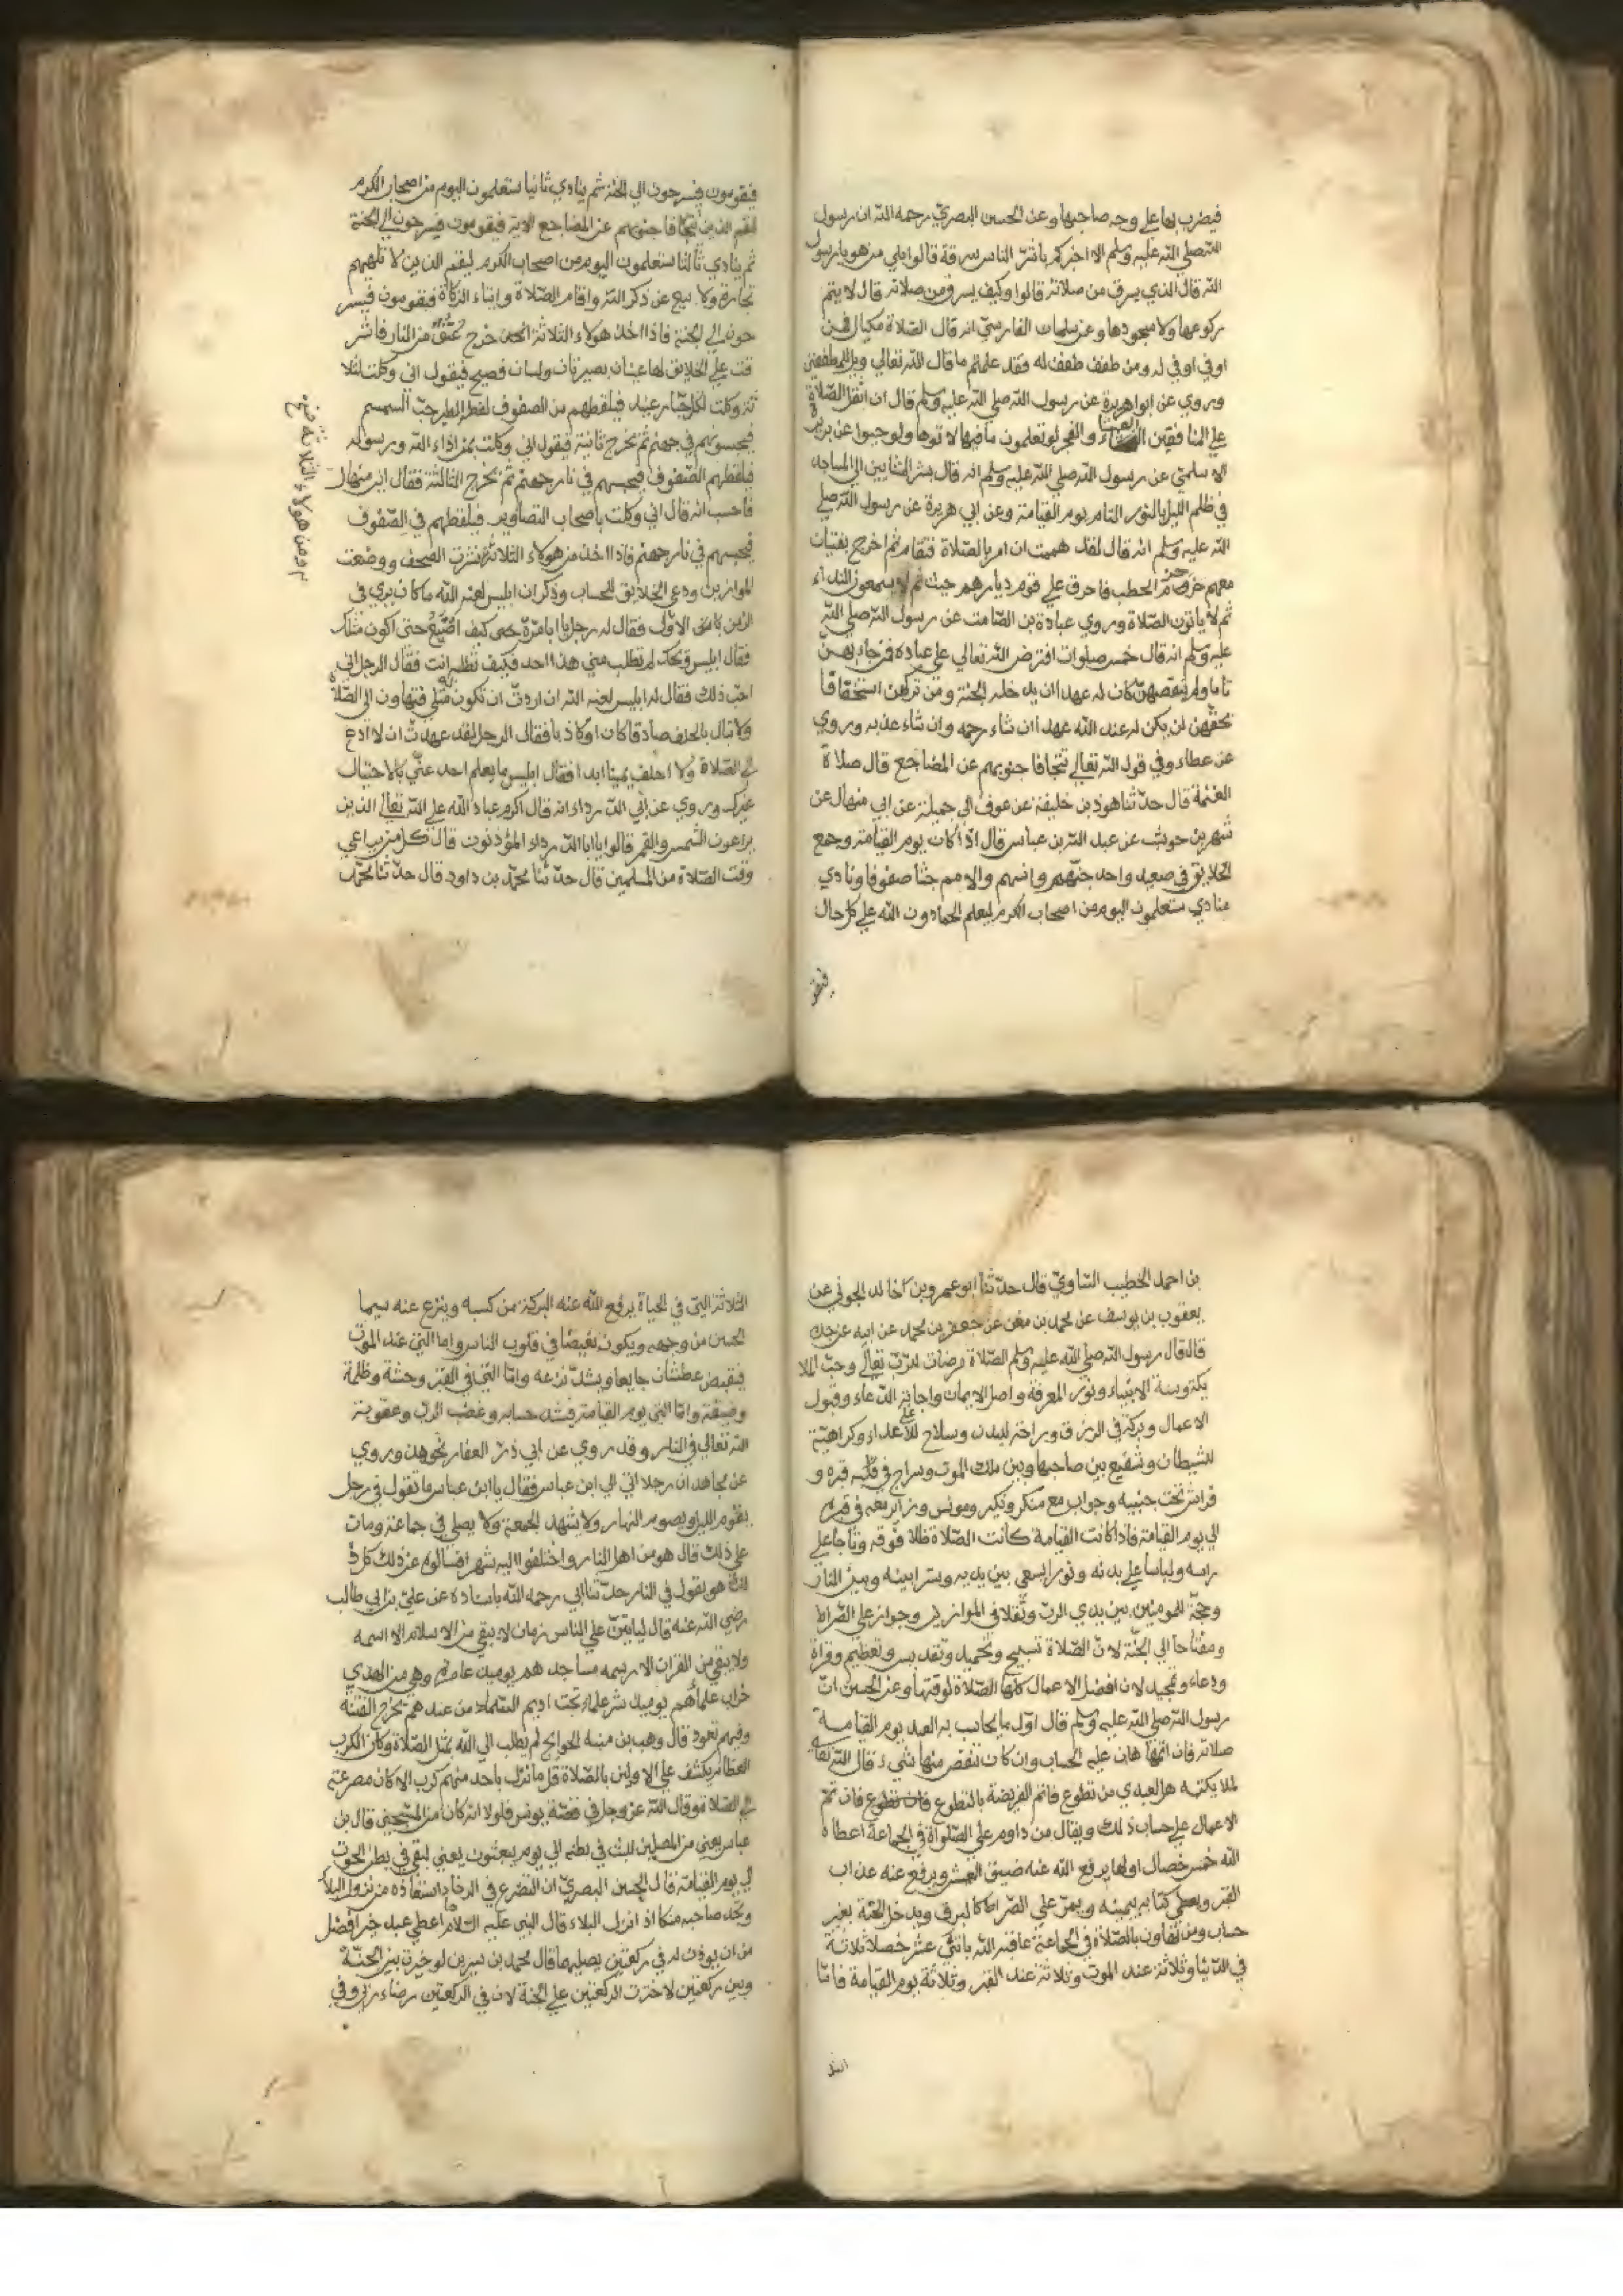 فيضرب بها على وجه صاحبها وعن الحسن البصري رحمه الله ان رسول
الله صلي الله عليه وسلم الا اخبركم باشر الناس سرقة قالوا بلي من هو يا رسول
الله قال الذي يسرق من صلاته قالوا وكيف يسرق من صلاته قال لا يتم
ركوعها ولا سجودها وعن سلمان الفارسي انه قال الصلاة مكيال فمن
اوفي اوفي له ومن طفف طفف له فقد علمتم ما قال الله تعالي ويل للمطففين
وروي عن ابو هريرة عن رسول الله صلي الله عليه وسلم قال ان اثقل الصلاة
علي المنافقين العشاء والفجر لو تعلمون ما فيها لاتوها ولو حبوا عن بريدة
الاسلمي عن رسول الله صلي الله عليه وسلم انه قال بشر المشايين الي المساجد
في ظلم الليل بالنور التام يوم القيامة وعن ابي هريرة عن رسول الله صلي
الله عليه وسلم انه قال لقد هممت ان امر بالصلاة فتقام ثم اخرج بفتيات
معهم حزم من الحطب فاحرق علي قوم ديارهم حيث يسمعون النداء
ثم لا ياتون الصلاة وروي عبادة بن الصامت عن رسول الله صلي الله
عليه وسلم انه قال خمس صلوات افترض الله تعالي علي عباده فمن جاء بهن
تاما ولم ينقصهن كان له عهدا ان يدخله الجنة ومن تركهن استخفافا
بحقهن لن يكن له عند الله عهد ان شاء رحمه وان شاء عذبه وروي
عن عطاء وفي قول الله تعالي تتجافا جنوبهم عن المضاجع قال صلاة
العتمة قال حدثنا هوذ بن خليفة عن عوف الي جميلة عن ابي منهال عن
شهر بن حوشب عن عبد الله بن عباس قال اذا كان يوم القيامة وجمع
الخلايق في صعيد واحد جنهم وانسهم والامم جثا صفوفا ونادي
منادي ستعلمون اليوم من اصحاب الكرم ليعلم الحمادون الله علي كل حال
فيقو
فيقومون فيسرحون الي الجنة ثم ينادي ثانيا ستعلمون اليوم من اصحاب الكرم
ليقم الذين تتجافا جنوبهم عن المضاجع الاية فيقومون فيسرحون الي الجنة
ثم ينادي ثالثا ستعلمون اليوم من اصحاب الكرم ليقم الذين لا تلهيهم
تجارة ولا بيع عن ذكر الله واقام الصلاة وايتاء الزكاة فيقومون فيسر
حون الي الجنة فاذا اخذ هولاء الثلاثة خرج عنق من النار فاشر
فت علي الخلايق لها عينان بصيرتان ولسان فصيح فيقول اني وكلت لثلا
ثة وكلت لكل جبار عنيد فيلقطهم من الصفوف لقط الطير حب السمسم
فيحبسونهم في جهنم ثم يخرج ثانية فيقول اني وكلت بمن اذاء الله ورسوله
فيلقطهم الصفوف فيحبسهم في نار جهنم ثم يخرج الثالثة فقال ابن منهال
فاحسب انه قال اني وكلت باصحاب التصاوير فيلقطهم في الصفوف
فيحبسهم في نار جهنم فاذا اخذ من هولاء الثلاثة نشرت الصحف ووضعت
الموازين ودعي الخلايق للحساب وذكر ان ابليس لعنه الله ما كان يري في
الزمن الاول فقال له رجل يا ابا مرة كيف اصنع حتى اكون مثلك
فقال ابليس ويحك لم تطلب مني هذا احد فكيف تطلب انت فقال الرجل اني
احب ذلك فقال له ابليس لعنه الله ان اردت ان تكون مثلي فتهاون الي الصلاة
ولا تبال بالحلف صادقا كان او كاذبا فقال الرجل لقد عهدت ان لا ادع
الصلاة ولا احلف يمينا ابدا فقال ابليس ما يعلم احد عني بالاحتيال
غيرك وروي عن ابي الدرداء انه قال اكرم عباد الله علي الله تعالي الذين
يراعون الشمس والقمر قالوا يا ابا الدرداء المؤذنون قال كل من يراعي
وقت الصلاة من المسلمين قال حدثنا محمد بن داود قال حدثنا محمد
من هولاء الثلاثة
بن احمد الخطيب قال حدثنا ابو عمرو بن خالد عن
يعقوب بن يوسف عن محمد بن معن عن جعفر بن محمد عن ابيه عن جده
قال قال رسول الله صلي الله عليه وسلم الصلاة مرضات للرب تعالي وحب الملا
يكة وسنة الانبياء ونور المعرفة واصل الايمان واجابة الدعاء وقبول
الاعمال وبركة في الرزق وراحة للبدن وسلاح علي الاعداء وكراهية
للشيطان وشفيع بين صاحبها وبين ملك الموت وسراج في قبره و
فراش تحت جنبيه وجواب مع منكر ونكير ومونس وزاير معه في قبره
الي يوم القيامة فاذا كانت القيامة كانت الصلاة ظلا فوقه وتاجا علي
راسه ولباسا علي بدنه ونورا يسعي بين يديه وسترا بينه وبين النار
وحجة للمومنين بين يدي الرب وثقلا في الموازين وجواز علي الصراط
ومفتاحا الي الجنة لان الصلاة تسبيح وتحميد وتقديس وتعظيم وقراة
ودعاء وتمجيد لان افضل الاعمال كلها الصلاة لوقتها وعن الحسن ان
رسول الله صلي الله عليه وسلم قال اول ما يحاسب به العبد يوم القيامة
صلاته فان اتمها هان عليه الحساب وان كان نقص منها شيء قال الله تعالى
لملايكته هل لعبدي من تطوع فاتم الفريضة بالتطوع فان تم
الاعمال علي حساب ذلك ويقال من داوم علي الصلواة في الجماعة اعطاه
الله خمس خصال اولها يرفع الله عنه ضيق العيش ويرفع عنه عذاب
القبر ويعطي كتابه بيمينه ويمر علي الصراط كالبرق ويدخل الجنة بغير
حساب ومن تهاون بالصلاة في الجماعة عاقبه الله باثني عشر خصلة ثلاثة
في الدنيا وثلاثة عند الموت وثلاثة عند القبر وثلاثة يوم القيامة فاما
الثل
الثلاثة التي في الحياة يرفع الله عنه البركة من كسبه وينزع عنه سيما
الحسن من وجهه ويكون بغيضا في قلوب الناس واما التي عند الموت
فيقبض عطشان جايعا ويشد نزعه واما التي في القبر وحشة وظلمة
وضيقة واما التي يوم القيامة فيشد حسابه وغضب الرب وعقوبة
الله تعالي في النار وقد روي عن ابي ذر الغفار نحو هذا وروي
عن مجاهد ان رجلا اتي الي ابن عباس فقال يا ابن عباس ما تقول في رجل
يقوم الليل ويصوم النهار ولا يشهد الجمعة ولا يصلي في جماعة ومات
علي ذلك قال هو من اهل النار واختلفوا اليه شهر افسالوه عن ذلك كل ذ
لك هو يقول في النار حدثنا ابي رحمه الله باسناده عن علي بن ابي طالب
رضي الله عنه قال لياتين علي الناس زمان لا يبقي من الاسلام الا اسمه
ولا يبقي من القران الا رسمه مساجدهم يوميذ عامرة وهي من الهدي
خراب علماؤهم يوميذ شر علماء تحت اديم السماء من عندهم تخرج الفتنة
وفيهم تعود قال وهب بن منبه الحوايج لم تطلب الي الله بمثل الصلاة وكان الكرب
العظام يكشف علي الاولين بالصلاة قل ما نزل باحد منهم كرب الا كان مفرعته
الي الصلاة وقال الله عز وجل في قصة يونس فلولا انه كان من المسبحين قال بن
عباس يعني من المصلين للبث في بطنه الي يوم يبعثون يعني لبقي في بطن الحوت
الي يوم القيامة قال الحسن البصري ان التضرع في الرخا استعاذه من نزول البلاء
ويجد صاحبه متكا اذا نزل البلاء قال النبي عليه السلام ما اعطي عبد خير افضل
من ان يوذن له في ركعتين يصليهما قال محمد بن سيرين لو خيرت بين الجنة
وبين ركعتين لاخترت الركعتين علي الجنة لان في الركعتين رضاء ربي وفي